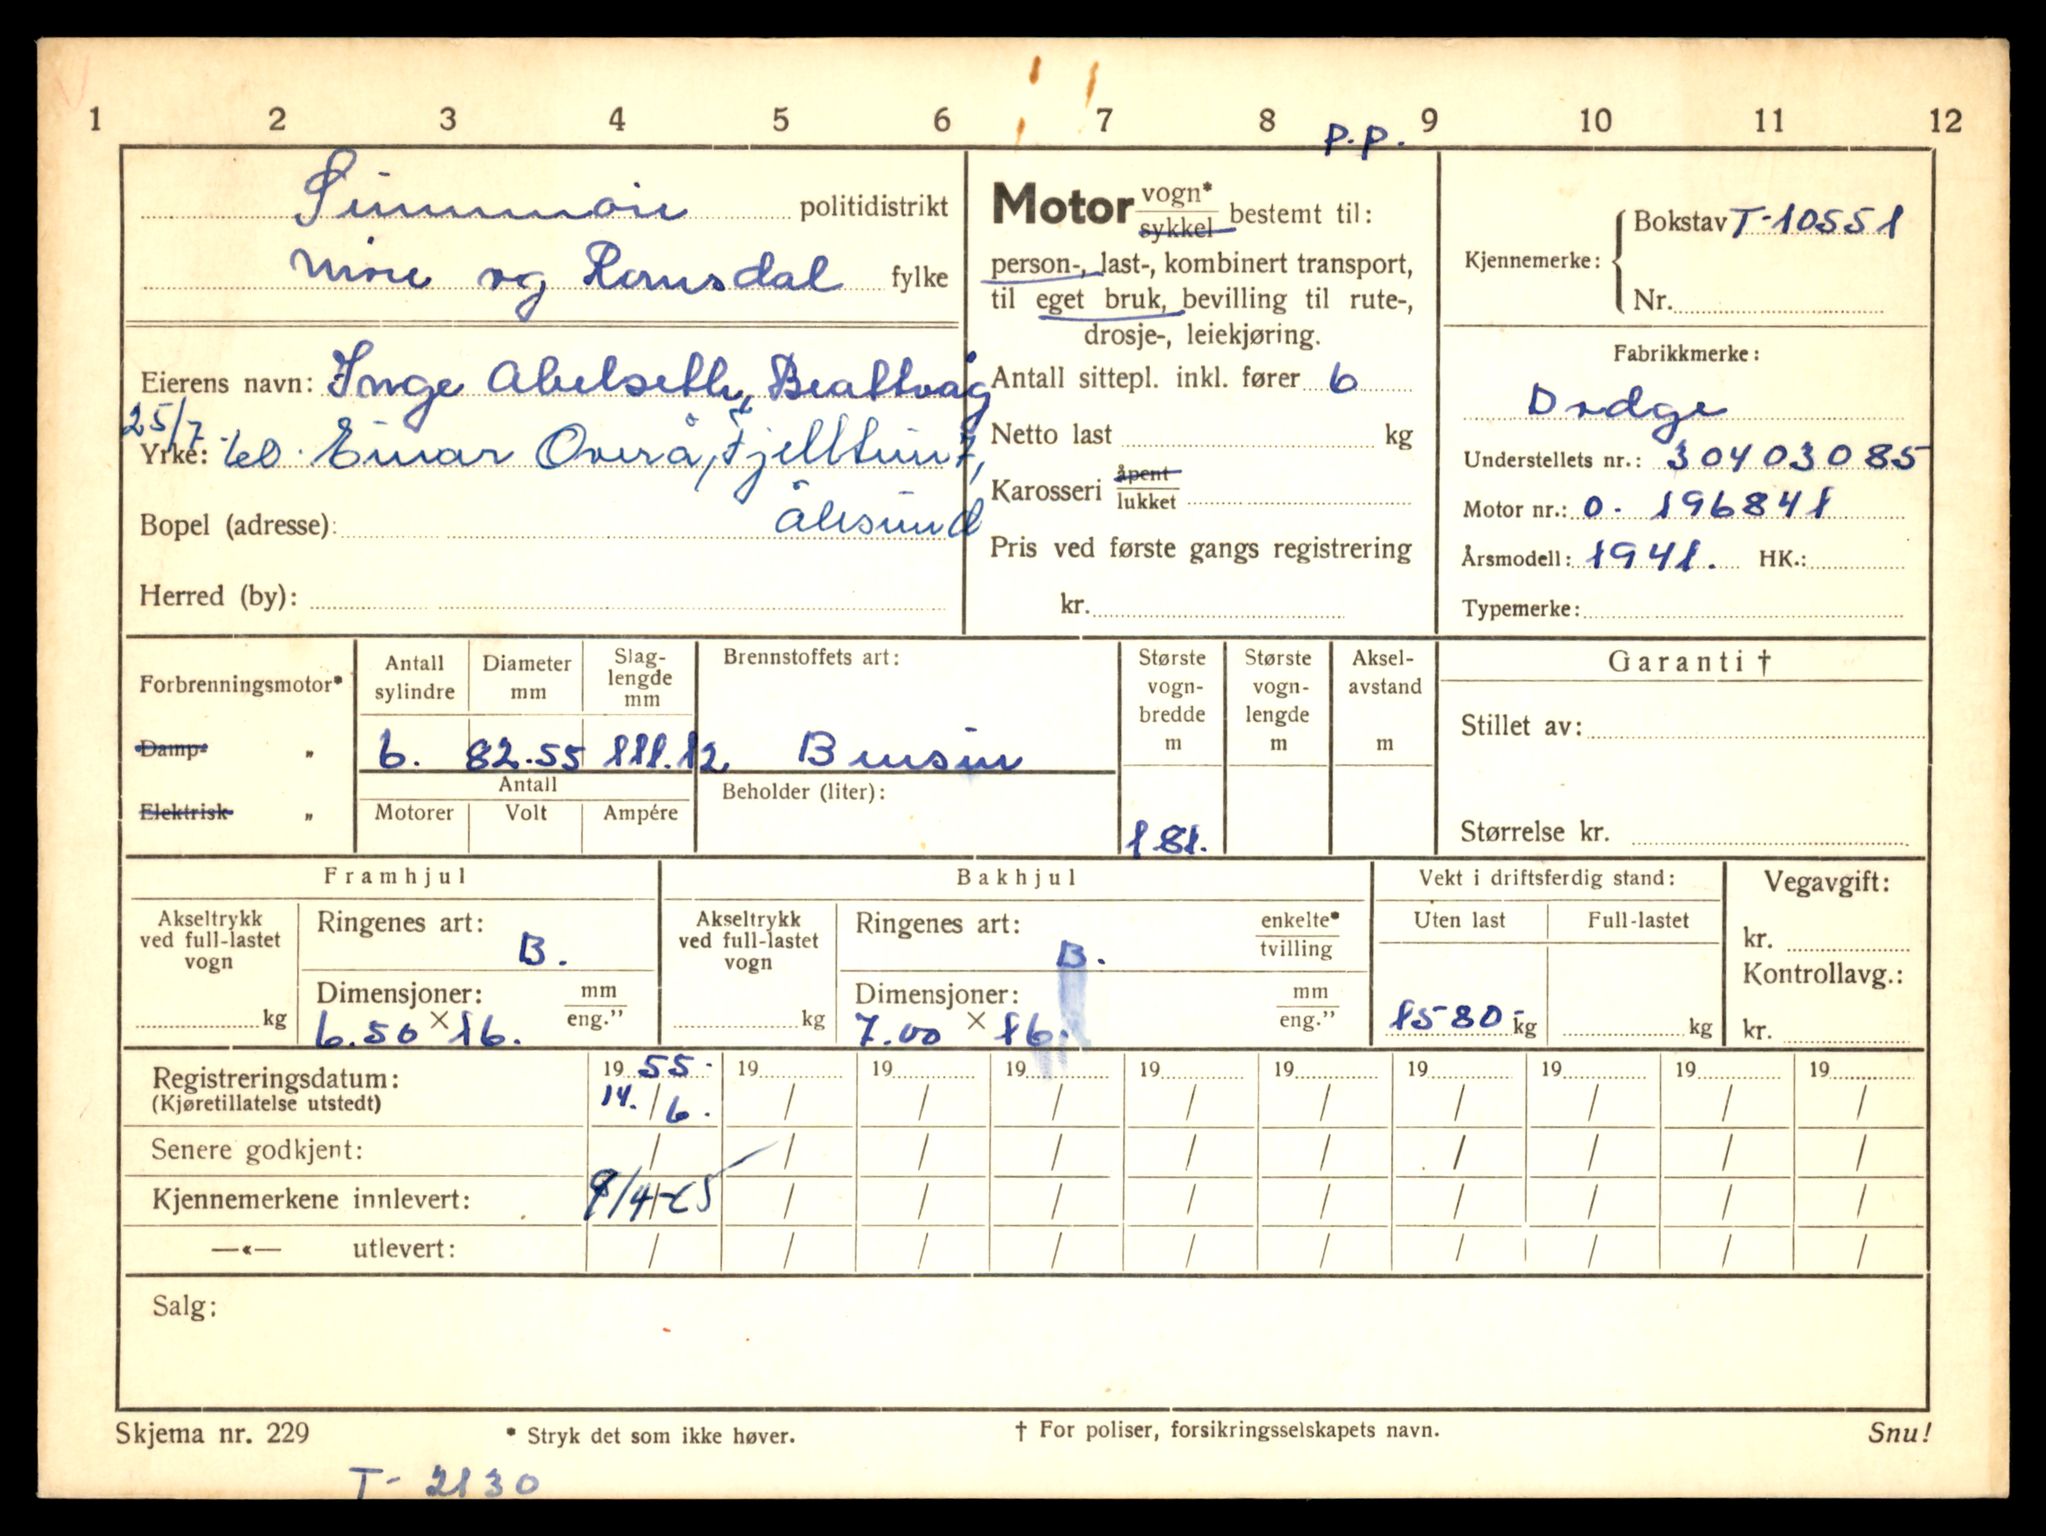 1 2 3 4 5 6 7 8 9 10 11 12
p.p.
Sunnmøre politidistrikt
Møre og Romsdal fylke
Eierens navn: Inge Abelseth, Brattvåg
25/7
Yrke: 60. Einar Overå, Fjelltun 7,
Bopel (adresse): Ålesund
Herred (by):
Motor vogn* / sykkel bestemt til:
person-, last-, kombinert transport,
til eget bruk, bevilling til rute-,
drosje-, leiekjøring.
Antall sittepl. inkl. fører 6
Netto last kg
Karosseri åpent / lukket
Pris ved første gangs registrering
kr.
Kjennemerke: Bokstav T-10551
Nr.
Fabrikkmerke:
Dodge
Understellets nr.: 30403085
Motor nr.: D. 196841
Årsmodell: 1941. HK.:
Typemerke:
Forbrenningsmotor*
Damp- „
Elektrisk „
Antall sylindre
6.
Diameter mm
82.55
Slag-lengde mm
111.12
Antall
Motorer Volt Ampére
Brennstoffets art:
Bensin
Beholder (liter):
Største vogn-bredde m
181.
Største vogn-lengde m
Aksel-avstand m
Garanti †
Stillet av:
Størrelse kr.
Framhjul
Akseltrykk ved full-lastet vogn
kg
Ringenes art:
B.
Dimensjoner: mm / eng.”
6.50 × 16.
Bakhjul
Akseltrykk ved full-lastet vogn
kg
Ringenes art: enkelte* / tvilling
B.
Dimensjoner: mm / eng.”
7.00 × 16.
Vekt i driftsferdig stand:
Uten last Full-lastet
1580- kg kg
Vegavgift:
kr.
Kontrollavg.:
kr.
Registreringsdatum: 19 55. 19 19 19 19 19 19 19 19 19
(Kjøretillatelse utstedt) 14. / 6. / / / / / / / / /
Senere godkjent: / / / / / / / / / /
Kjennemerkene innlevert: 9/4-65 / / / / / / / / /
—«— utlevert: / / / / / / / / / /
Salg:
Skjema nr. 229 * Stryk det som ikke høver. † For poliser, forsikringsselskapets navn. Snu!
T-2130